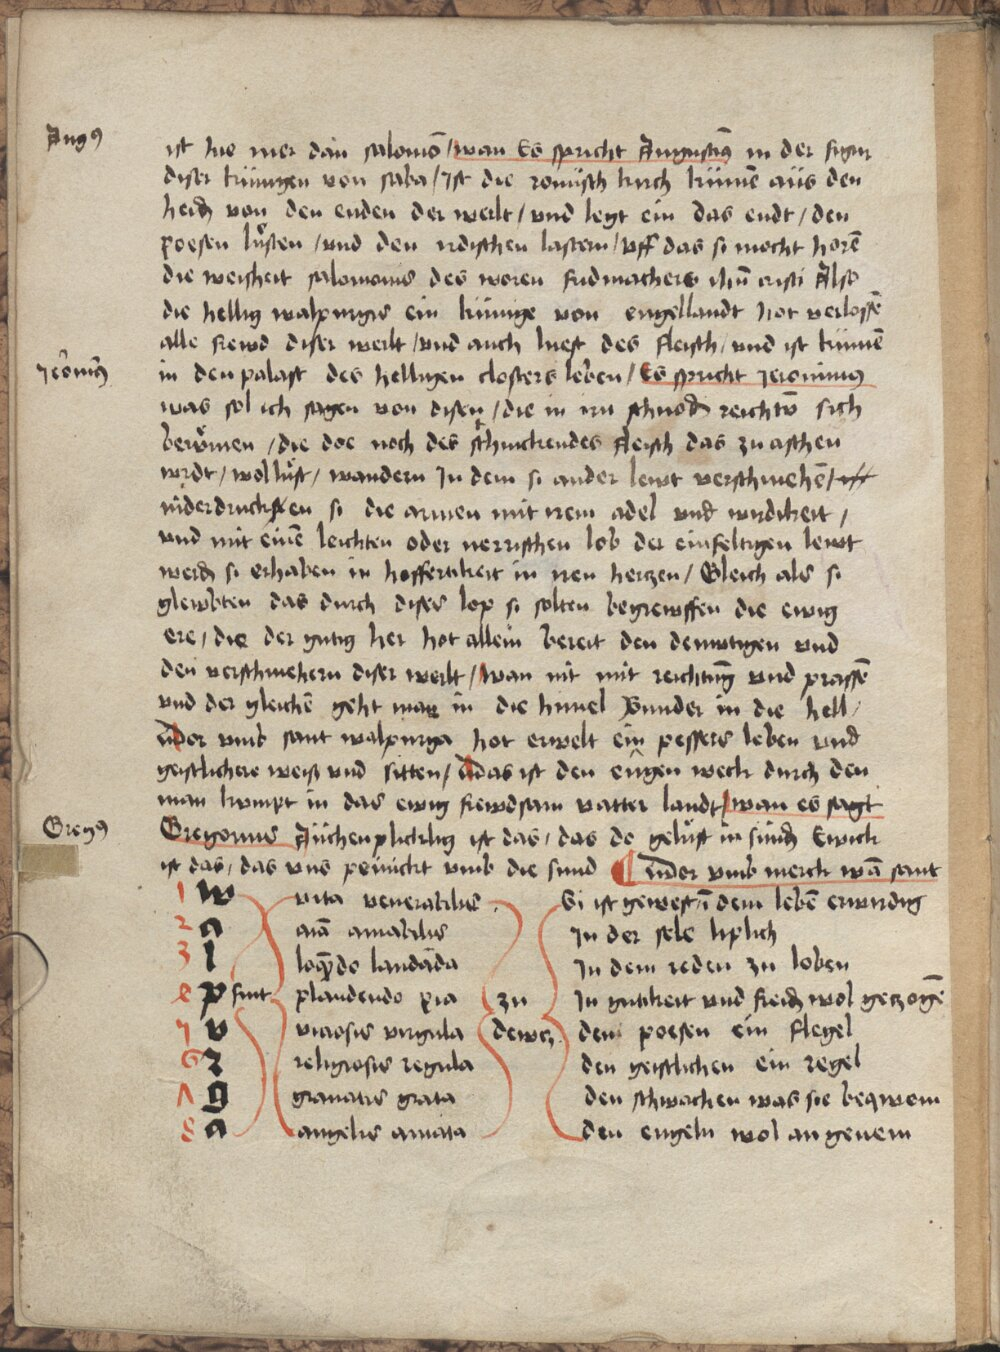 Augꝰ
ist hie mer dan salomō / wan Es spricht Augustinꝰ in der figur
diser künigen von saba / Ist die römisch kirch kümē aüs den
heidē von den enden der werlt / vnd legt ein das endt / den
poesen lüsten / vnd den irdischen lastern / vff das si mocht horē
die weisheit salomonis des woren fridmachers ihū cristi Also
die hellig walpurgis ein künige von engellandt hot verlossē
alle frewd diser werlt / vnd auch lüst des fleisch / vnd ist kümē
Jeronimꝰ
in den palast des helligen closters leben / Es spricht Jeronimus
was sol ich sagen von disen / die in irn schnodē reichtō sich
berömen / die doe noch des schmeckendes fleisch das zu aschen
wirdt / wollüst / wandern In dem si ander lewt verschmehē /
niderdrucken si die armen mit irem adel vnd wirdikeit /
vnd mit einē leichten oder nerrischen lob der einfeltigen lewt
werdē si erhaben in hoffertikeit in iren hertzen / Gleich als si
glewbten das durch dises lop si solten begreiffen die ewig
ere / die der gutig her hot allein bereit den demutigen vnd
den verschmehern diser werlt / wan nit mit reichtūg vnd prassē
vnd der gleichē geht man in die himel Sunder in die hell /
vmb sant walpurga hot erwelt ein pessers leben vnd
geistlichere weiß vnd sitten / das ist den engen weck durch den
man kumpt in das ewig frewdsam vatter landt / wan es sagt
Gregꝰ
Gregorius Aüchenplicklig ist das / das do gelüst in sündē Ewick
ist das / das vns peinickt vmb die sund ¶ vmb merck wā sant
1 W vita venerabilis Si ist gewest ī dem lebē erwirdig
2 a aīa amabilis In der sele liplich
3 l loquēdo laudāda In dem reden zu loben
4 p fuit plaudendo pia zu In gutikeit vnd freidē wol getzogē
5 v viciosis virgula dewtz den poesen ein flegel
6 r religiosis regula den geistlichen ein regel
7 g grauatis grata den schwachen was sie beqwem
8 a angelis amata den engeln wol angenem